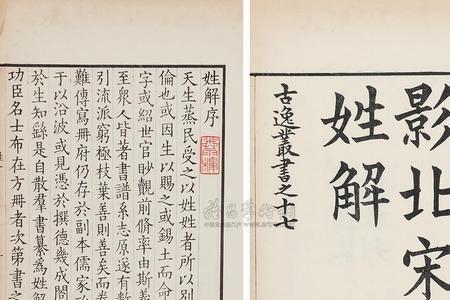 影北宋
姓解
古逸叢書之十七
姓解序
天生蒸民受之以姓姓者所以別
倫也或因生以賜之或錫土而命
字或紹世官眇覿前脩率由斯義
至衆人皆著書譜系志原遂有數
引流派窮極枝葉善則善矣而卷
難傳寫冊府仍存於副本儒家
于以沿波或見憑於撰德幾成閣
於生知繇是自散羣書纂為姓解
功臣名士布在方冊者次第書之